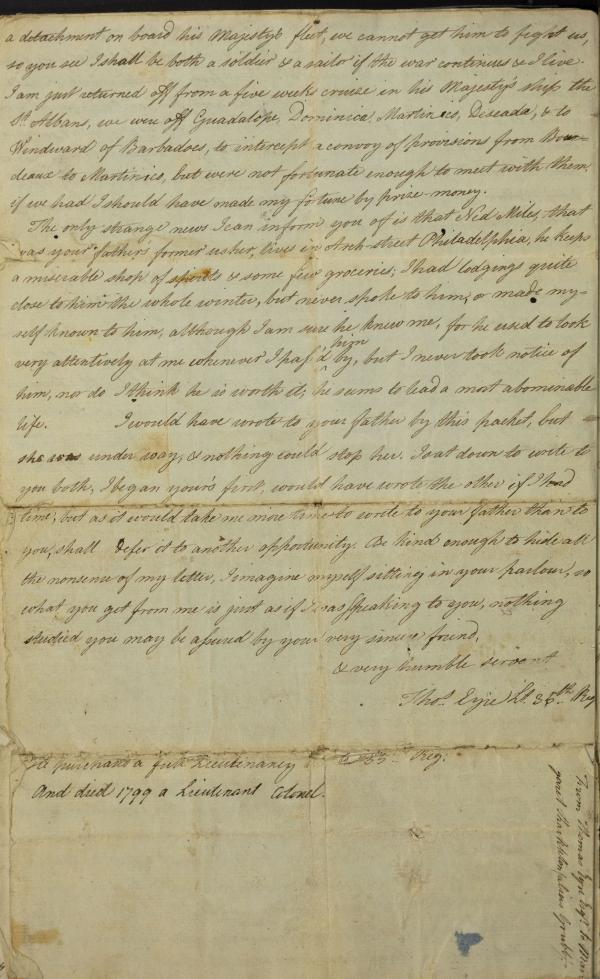 a detachment on board his Majesty's fleet, we cannot get him to fight us,
so you see I shall be both a soldier & a sailor if the war continues & I live.
I am just returned off from a five weeks cruise in his Majesty's ship the
St. Albans, we were off Guadalope, Dominica, Martinico, Deseada, & to
Windward of Barbadoes, to intercept a convoy of provisions from Bour=
deaux to Martinico, but were not fortunate enough to meet with them,
if we had I should have made my fortune by prize-money.
The only strange news I can inform you of is that Ned Miles, that
was your father's former usher, lives in Arch-street Philadelphia, he keeps
a miserable shop of spirits & some few groceries; I had lodgings quite
close to him the whole winter, but never spoke to him, or made my-
self known to him, although I am sure he knew me, for he used to look
very attentively at me whenever I pass'd him by, but I never took notice of
him, nor do I think he is worth it; he seems to lead a most abominable
life. I would have wrote to your father by this packet, but
she was under way, & nothing could stop her. I sat down to write to
you both, I began yours first, would have wrote the other if I had
time; but as it would take me more time to write to your father than to
you, shall defer it to another opportunity. Be kind enough to hide all
the nonsense of my letter, I imagine myself sitting in your parlour, so
what you get from me is just as if I was speaking to you, nothing
studied you may be assured by your very sincere friend,
& very humble servant
Thos. Eyre Lt. 35th Reg
He purchased a Lieutenancy 35th Reg.
And died 1799 a Lieutenant Colonel.
From Thomas Eyre Esqr. to
Grubb